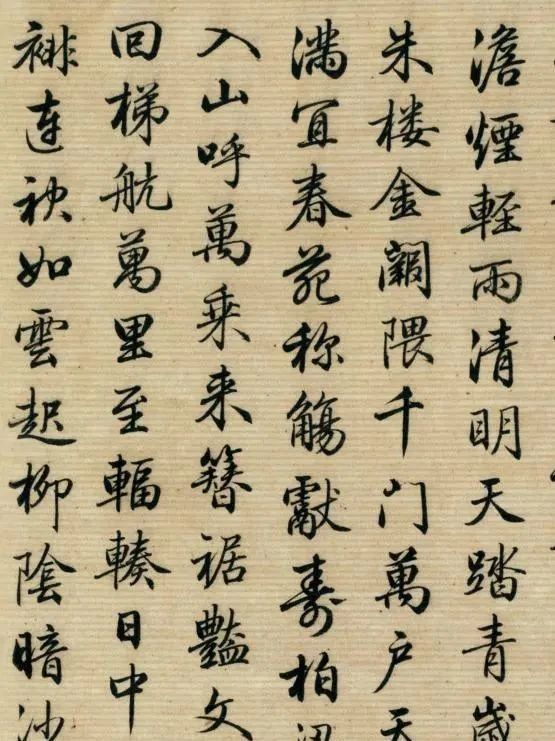 澹煙輕雨清明天踏青歲
朱楼金闕隈千门萬户天
满宜春苑称觴獻壽柏梁
入山呼萬乘来簪裾豔文
回梯航萬里至輻輳日中
裶连袂如雲起柳陰暗沙